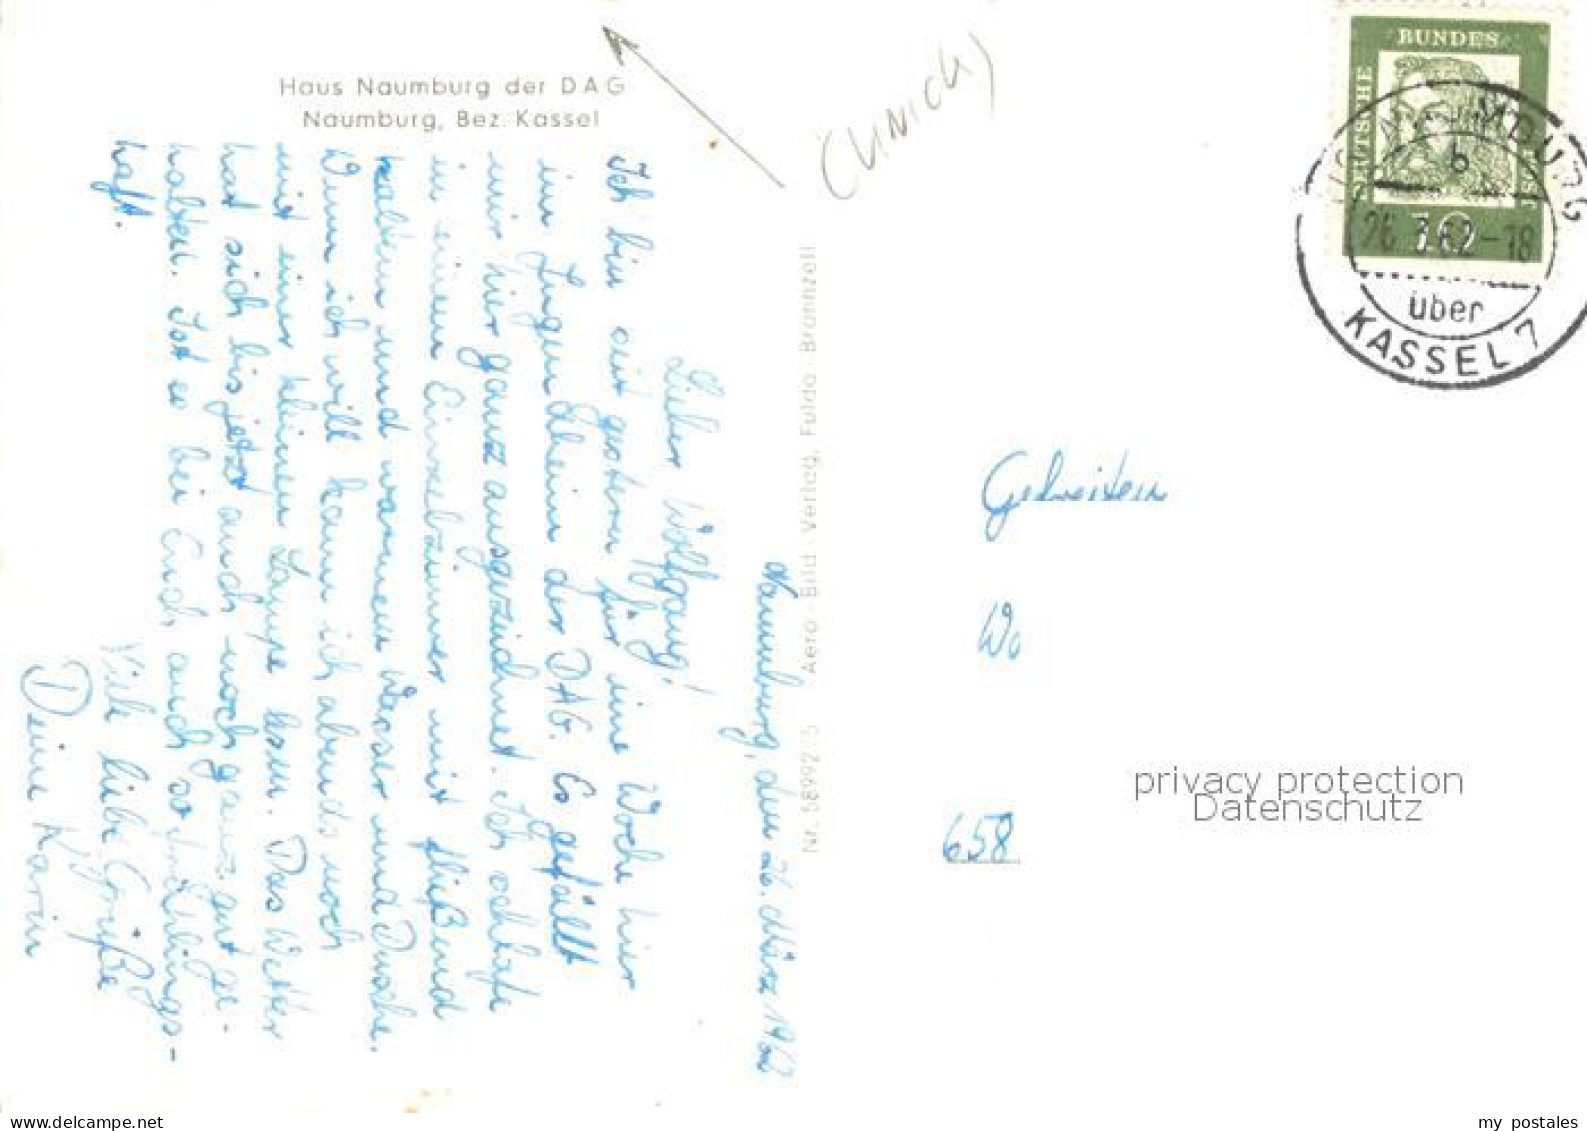 Haus Naumburg der DAG
Naumburg, Bez. Kassel
(UNICH)
Naumburg, den 26. März 1962
Lieber Wolfgang!
Ich bin seit gestern für eine Woche hier
im Jugendheim der DAG. Es gefällt
mir hier ganz ausgezeichnet. Ich schlafe
in einem Einzelzimmer mit fließend
kaltem und warmem Wasser und Dusche.
Wenn ich will kann ich abends noch
mit einer kleinen Lampe lesen. Das Wetter
hat sich bis jetzt auch noch ganz gut ge-
halten. Ist es bei Euch auch so frühlings-
haft.
Viele liebe Grüße
Deine Karin
Nr. 58992/5 Aero-Bild-Verlag, Fulda-Bronnzell
DEUTSCHE BUNDESPOST
10
NAUMBURG
b
26.3.62-18
über
KASSEL 7
Gefreiten
Wo
658
privacy protection
Datenschutz
delcampe.net
my_postales